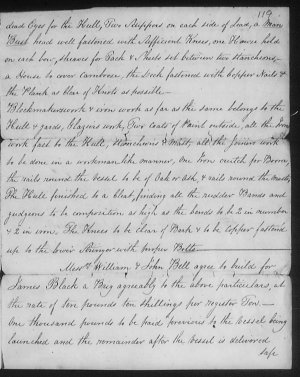 119
dead Eyes for the Hull, Two Scuppers on each side of Lead, a Man
Bust head well fastened with Sufficient Knees, one Hawse hold
on each bow, sheaves for Tack & Sheets set between two Stancheons,
a House to cover Camboose, the Deck fastened with Copper Nails &
the Plank as clear of Knots as possible —
Blockmakerswork & iron work as far as the same belongs to the
Hull & yards, Glaziers work, Two Coats of Paint outside, all the Iron
work fast to the Hull, Stancheons & Mast, all the Joiner work
to be done in a workman like manner, One Iron Crutch for Boom,
the rails round the vessel to be of Oak or Ash, & rails round the Masts,
The Hull finished to a Cleat, finding all the rudder Bands and
gudgeons to be composition as high as the bends to be 2 in number
& 2 in iron. The Knees to be clear of Bark & to be Copper fastened
up to the lower Stringer with proper Bolts
Messrs William & John Bell agree to build for
James Black a Brig agreeably to the above particulars, at
the rate of ten pounds ten shillings per register Ton —
One thousand pounds to be paid previous to the Vessel being
launched and the remainder after the vessel is delivered
safe